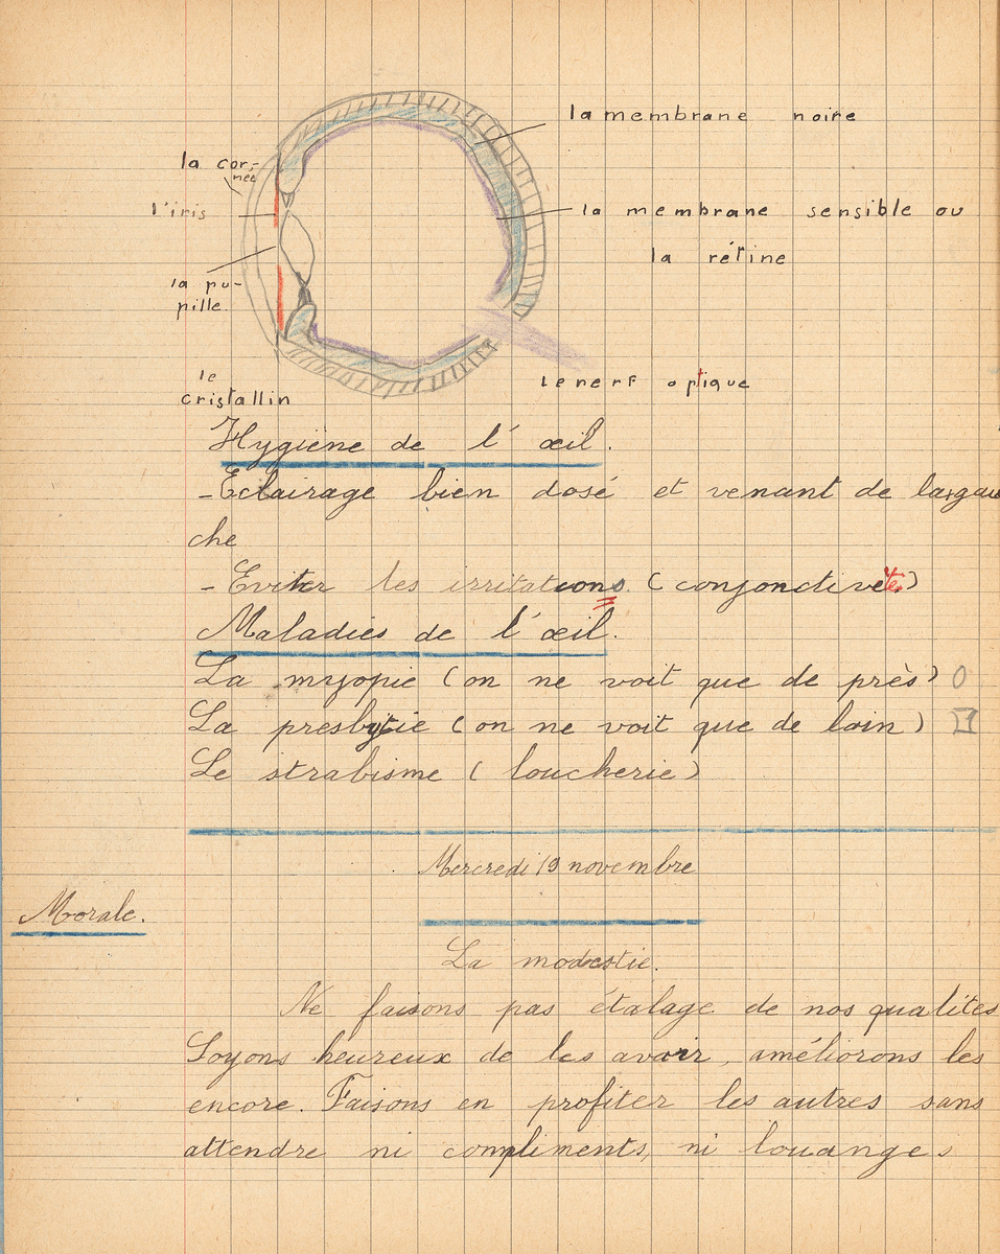 la membrane noire
la cor-
née
l'iris
la membrane sensible ou
la rétine
la pu-
pille.
le
cristallin
Le nerf optique
Hygiène de l'œil.
- Eclairage bien dosé et venant de la gau
che
- Eviter les irritations. (conjonctivite)
Maladies de l'œil.
La myopie (on ne voit que de près)
La presbytie (on ne voit que de loin)
Le strabisme (loucherie)
Mercredi 19 novembre
Morale.
La modestie.
Ne faisons pas étalage de nos qualités
Soyons heureux de les avoir, améliorons les
encore. Faisons en profiter les autres sans
attendre ni compliments, ni louanges